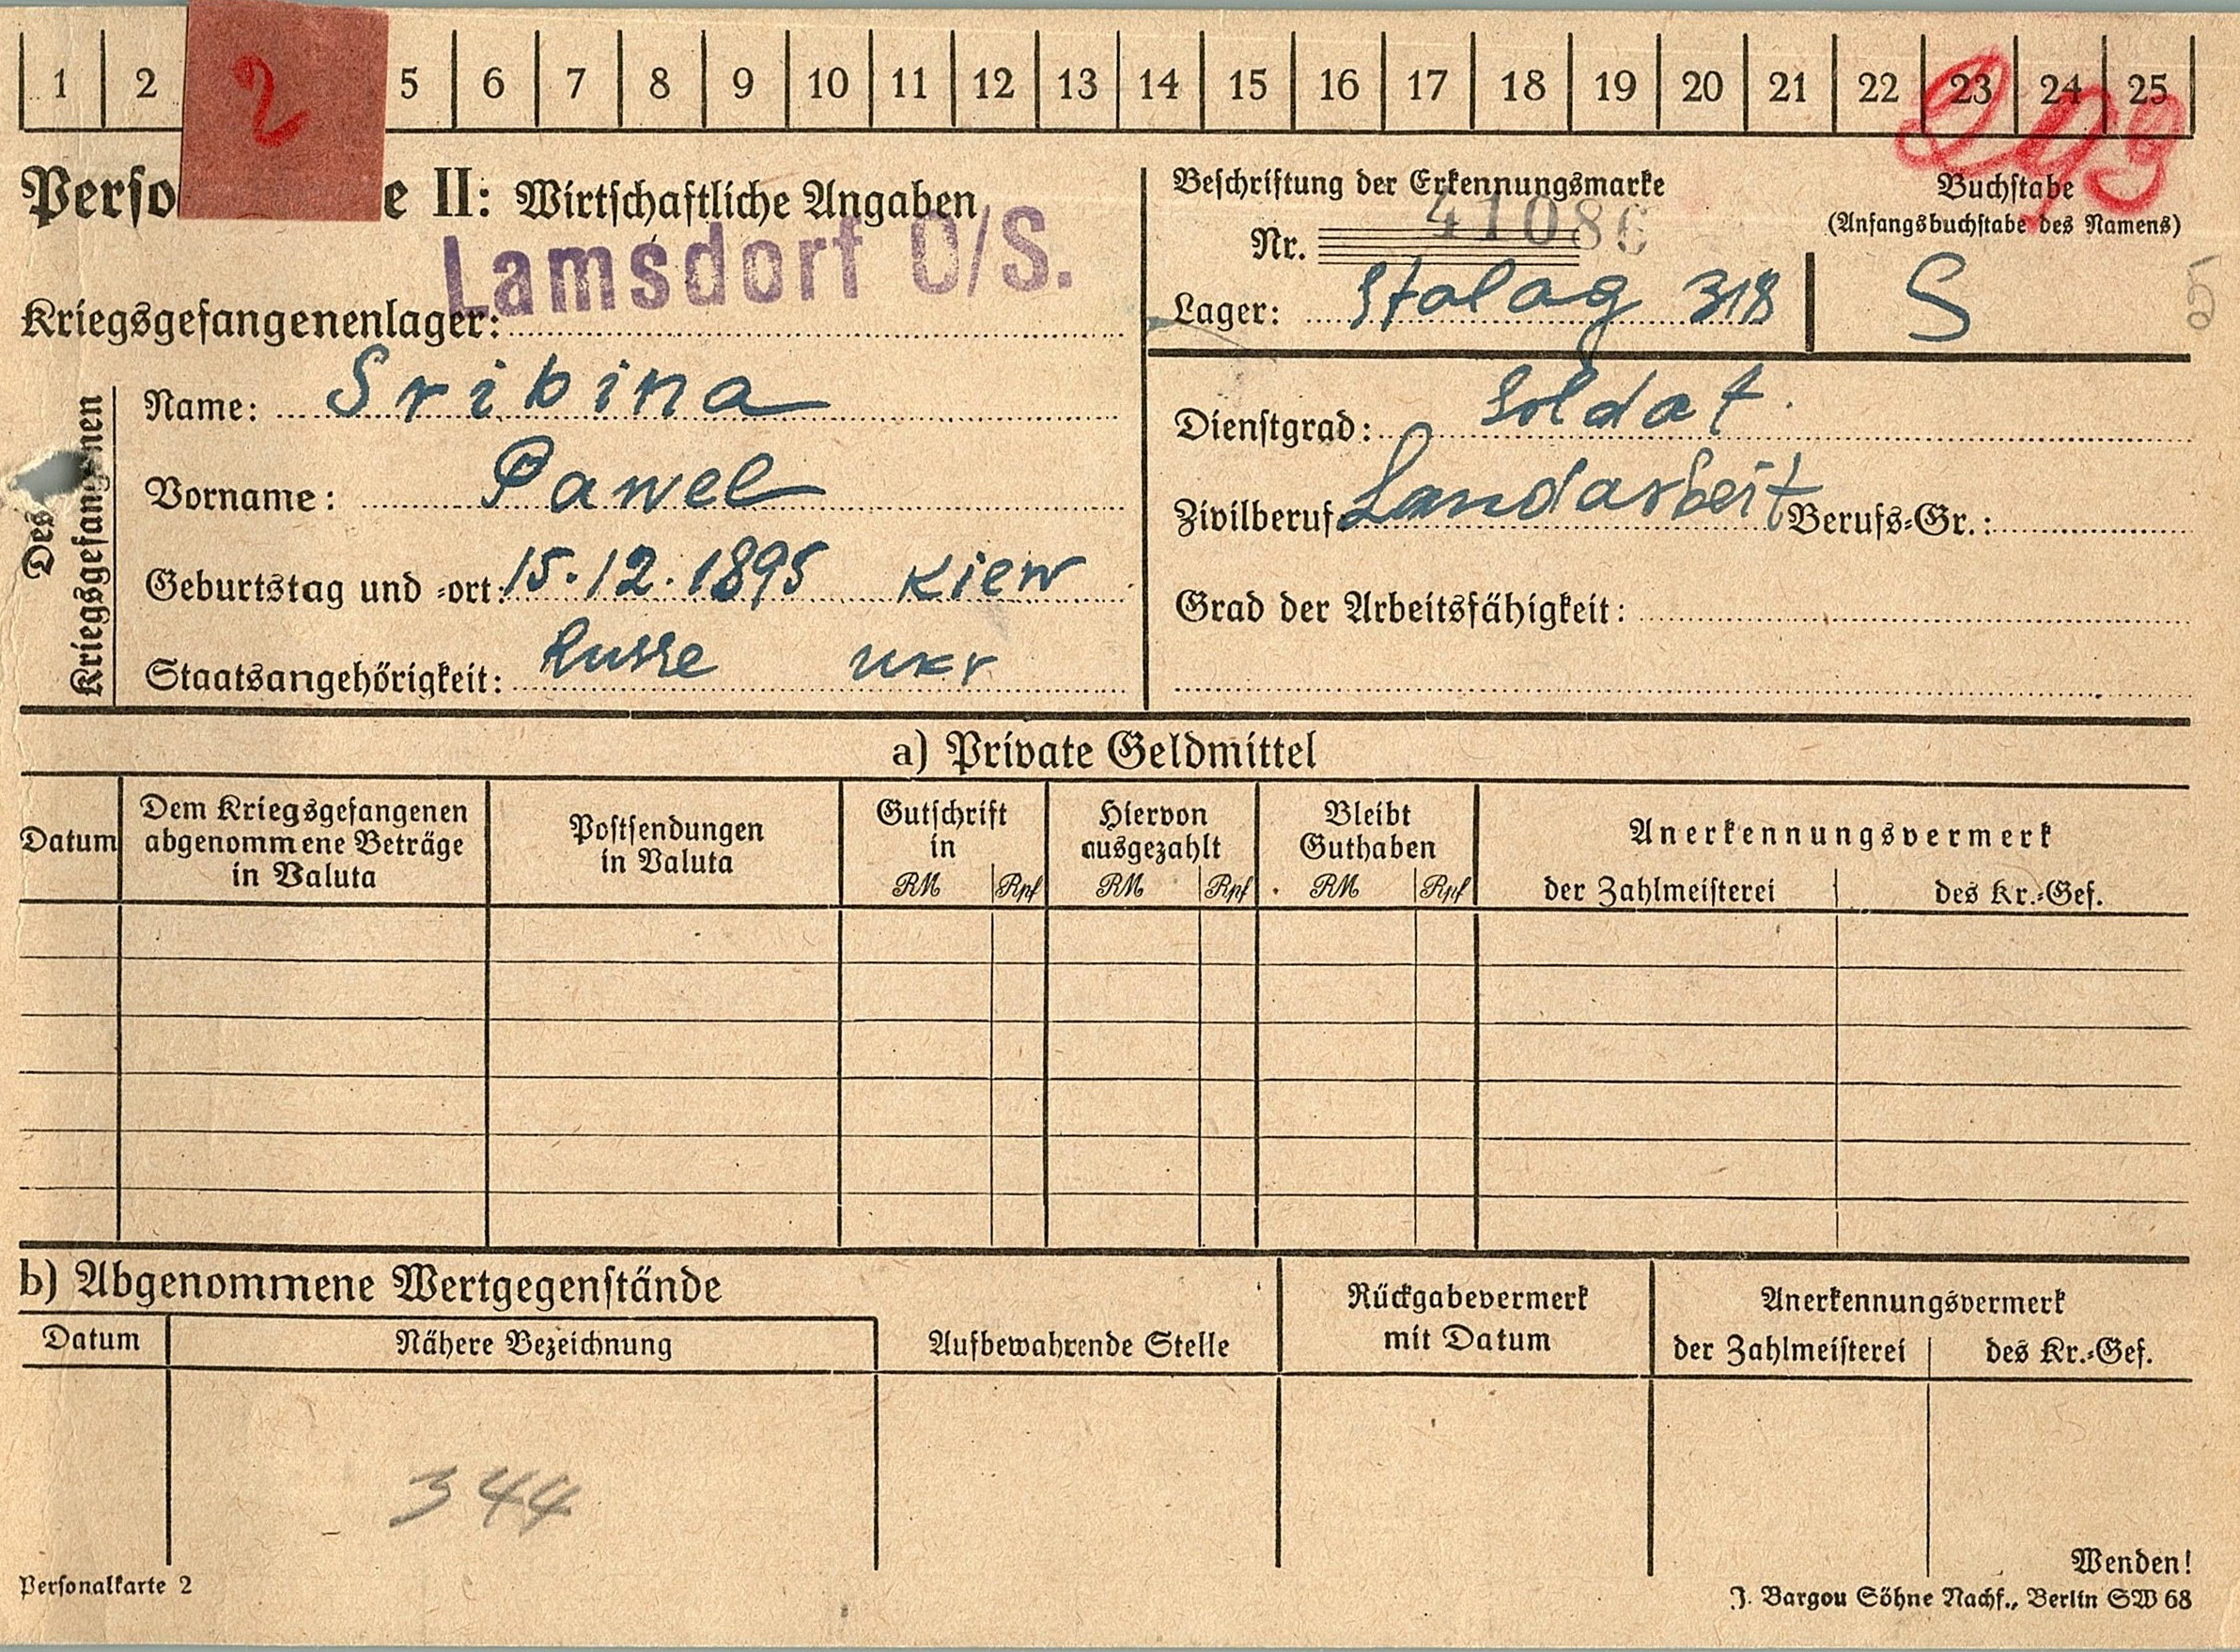 1 2 2 5 6 7 8 9 10 11 12 13 14 15 16 17 18 19 20 21 22 23 24 25
Perso e II: Wirtschaftliche Angaben
Lamsdorf O/S.
Kriegsgefangenenlager:
Beschriftung der Erkennungsmarke
Nr. 41086
Lager: Stalag 318
Buchstabe
(Anfangsbuchstabe des Namens)
S
25
Des Kriegsgefangenen
Name: Sribina
Vorname: Pawel
Geburtstag und -ort: 15.12.1895 Kiew
Staatsangehörigkeit: Russe ukr
Dienstgrad: Soldat.
Zivilberuf: Landarbeit Berufs-Gr.:
Grad der Arbeitsfähigkeit:
a) Private Geldmittel
Datum
Dem Kriegsgefangenen
abgenommene Beträge
in Valuta
Postsendungen
in Valuta
Gutschrift
in
RM Rpf
Hiervon
ausgezahlt
RM Rpf
Bleibt
Guthaben
RM Rpf
Anerkennungsvermerk
der Zahlmeisterei des Kr.-Gef.
b) Abgenommene Wertgegenstände
Datum Nähere Bezeichnung
Aufbewahrende Stelle
Rückgabevermerk
mit Datum
Anerkennungsvermerk
der Zahlmeisterei des Kr.-Gef.
344
Wenden!
Personalkarte 2
J. Bargou Söhne Nachf., Berlin SW 68